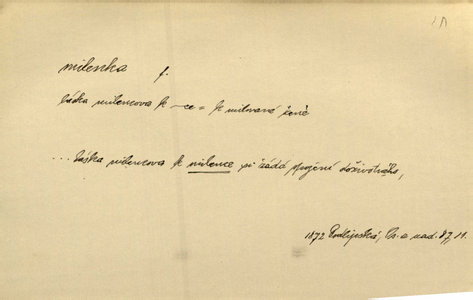 milenka f.
láska milencova k ~ce = k milované ženě
... láska milencova k milence si žádá spojení doživotního,
1872 Podlipská, Os. a nad. 8